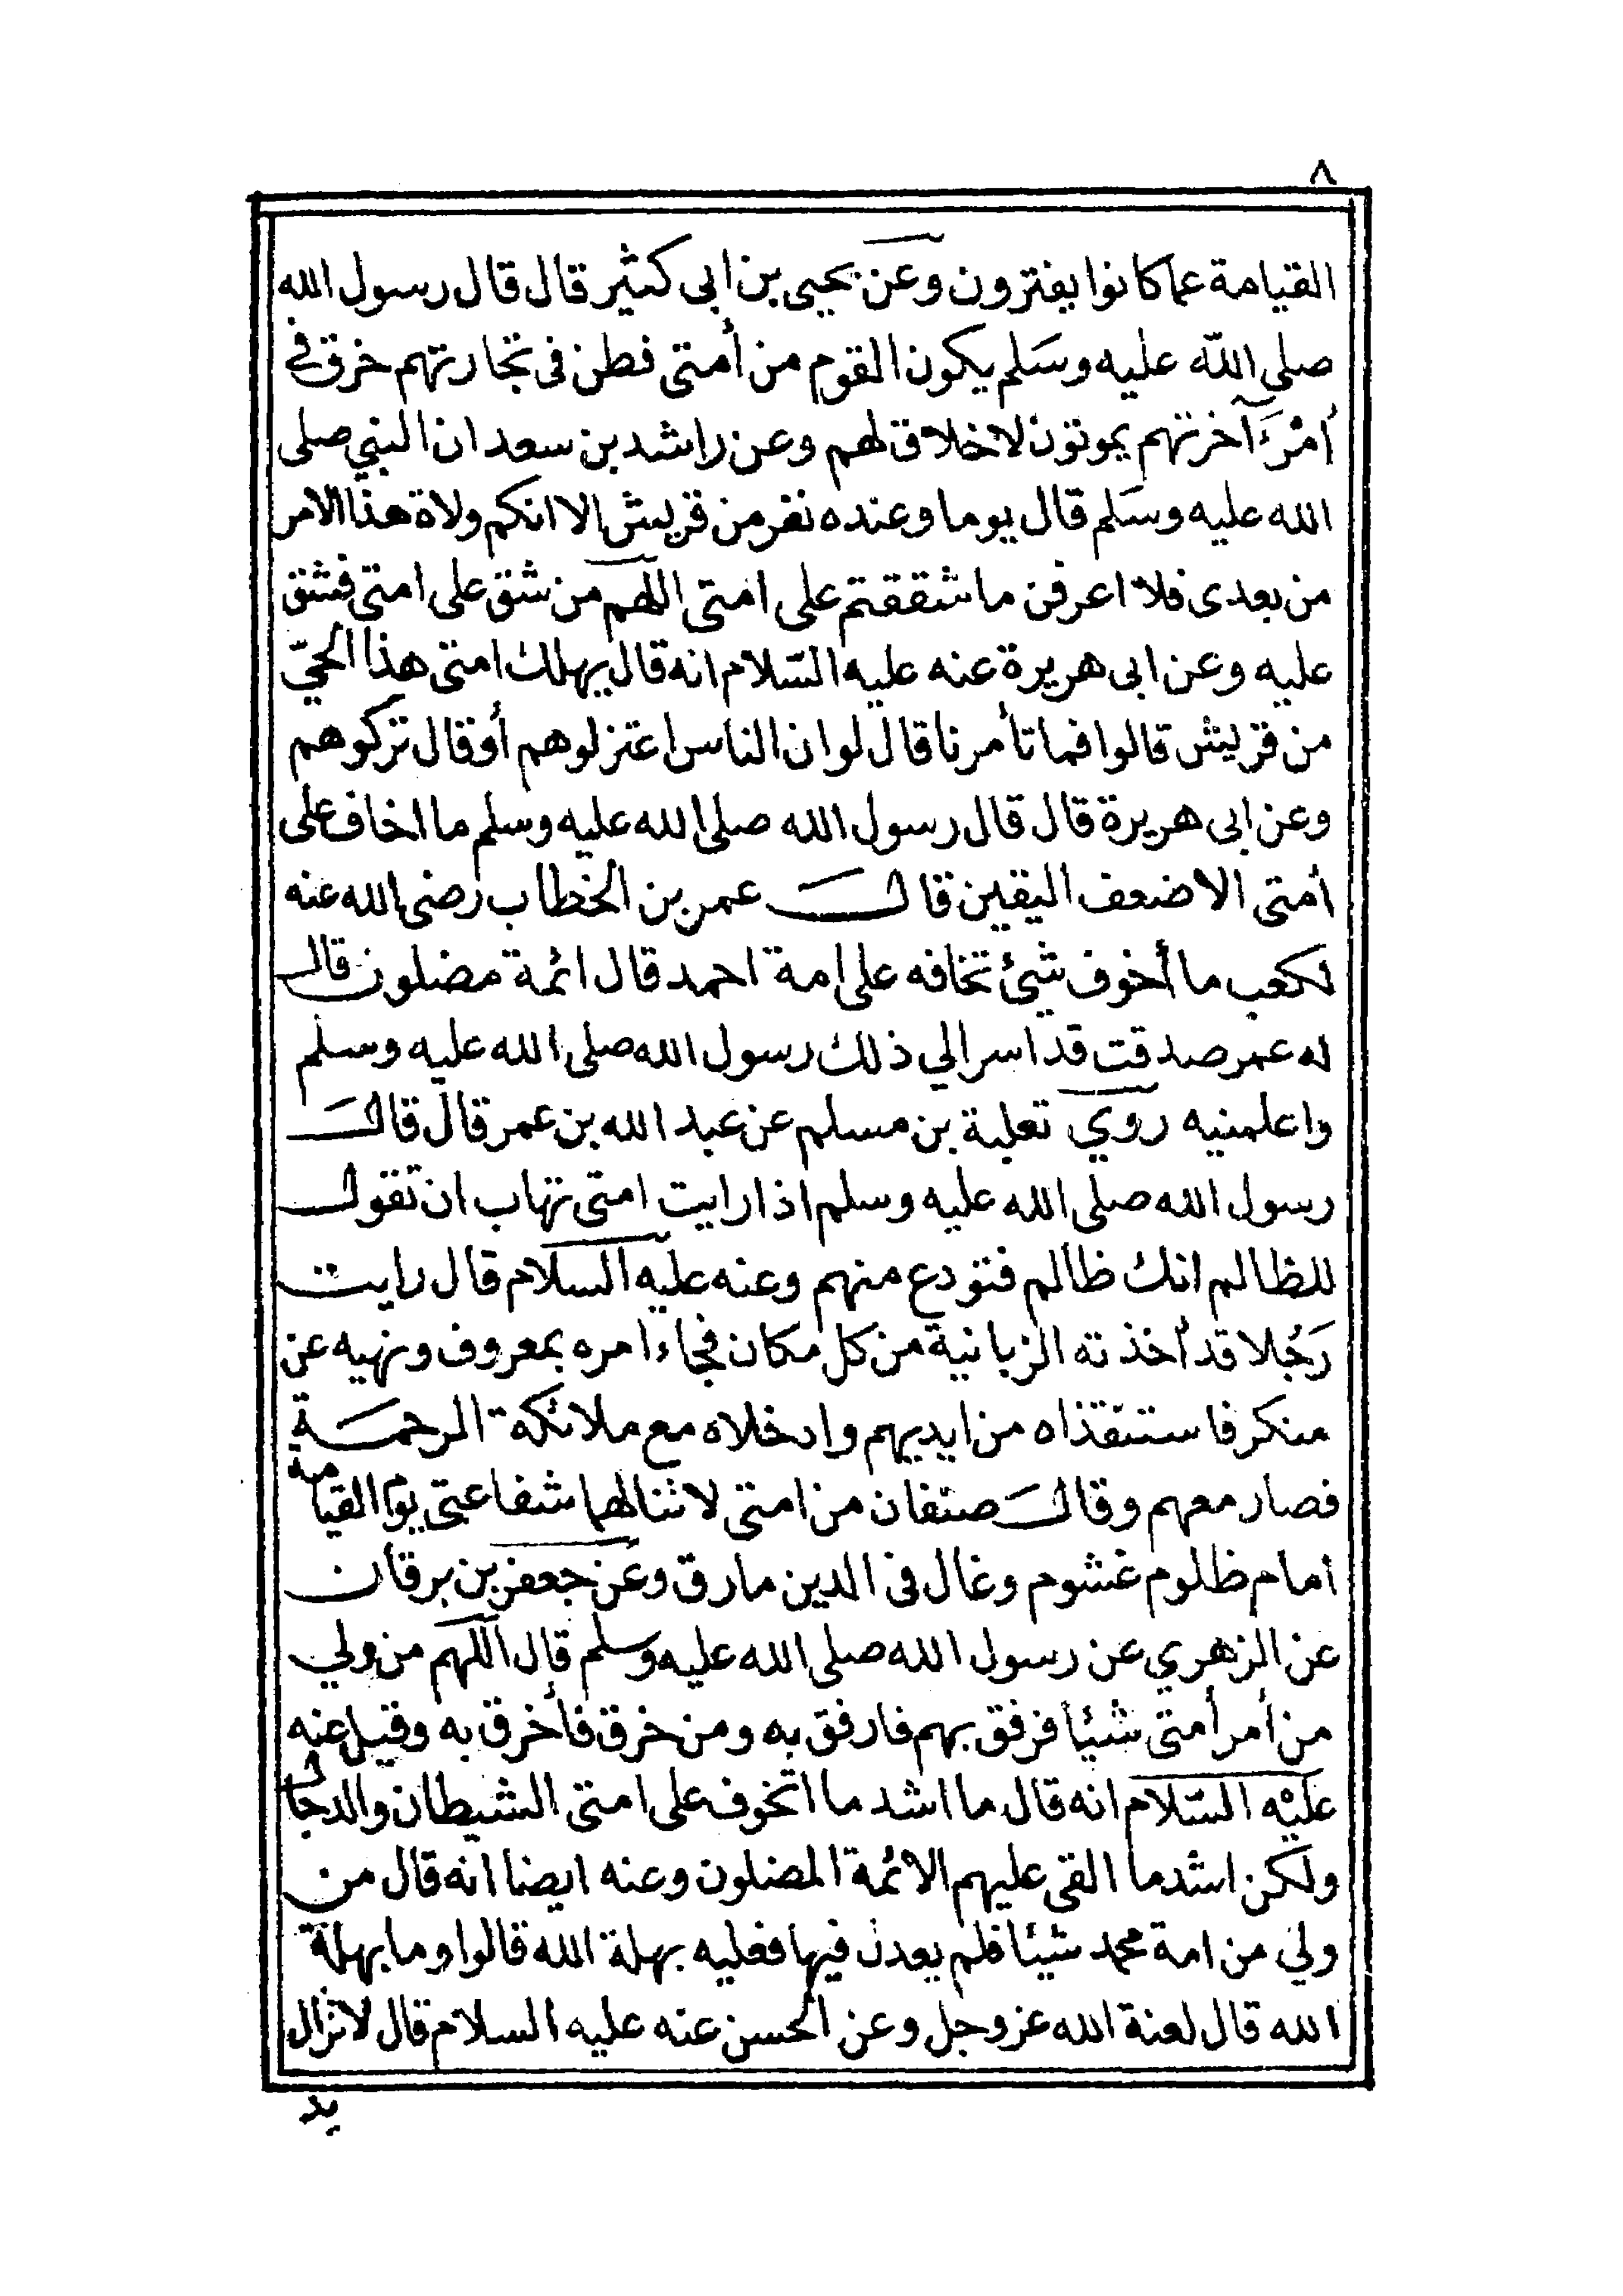 ٨
القيامة عما كانوا يفترون وعن يحيى بن ابى كثير قال قال رسول الله
صلى الله عليه وسَلم يكون القوم من أمتى فطن فى تجارتهم خرق فى
أمْرَ آخرتهم يموتون لا خلاق لهم وعن راشد بن سعد ان النبي صلى
الله عليه وسَلم قال يوما وعنده نفر من قريش الا انكم ولاة هذا الامر
من بعدى فلا اعرفن ما شققتم على امتى اللهم من شق على امتى فشق
عليه وعن ابى هريرة عنه عليه السّلام انه قال يهلك امتى هذا الحيّ
من قريش قالوا فما تأمرنا قال لو ان الناس اعتزلوهم أو قال تركوهم
وعن ابى هريرة قال قال رسول الله صلى الله عليه وسلم ما اخاف على
أمتى الا ضعف اليقين قال عمر بن الخطاب رضى الله عنه
لكعب ما أخوف شئ تخافه على امة احمد قال ائمة مضلون قال
له عمر صدقت قد اسر الي ذلك رسول الله صلى الله عليه وسلم
واعلمنيه روي ثعلبة بن مسلم عن عبد الله بن عمر قال قال
رسول الله صلى الله عليه وسلم اذا رايت امتى تهاب ان تقول
للظالم انك ظالم فتودع منهم وعنه عليه السلام قال رايت
رَجُلا قد أخذته الزبانية من كل مكان فجاء امره بمعروف ونهيه عن
منكر فاستنقذاه من ايديهم وادخلاه مع ملائكة الرحمة
فصار معهم وقال صنفان من امتى لا تنالهما شفاعتى يوم القيامة
امام ظلوم غشوم وغال فى الدين مارق وعن جعفر بن برقان
عن الزهري عن رسول الله صلى الله عليه وسلم قال اللهم من ولي
من أمر أمتى شيئا فرفق بهم فارفق به ومن خرق فأخرق به وقيل عنه
عليْه السّلام انه قال ما اشد ما اتخوف على امتى الشيطان والدجال
ولكن اشد ما القى عليهم الائمة المضلون وعنه ايضا انه قال من
ولي من امة محمد شيئا فلم يعدل فيها فعليه بهلة الله قالوا وما بهلة
الله قال لعنة الله عز وجل وعن الحسن عنه عليه السلام قال لا تزال
يد